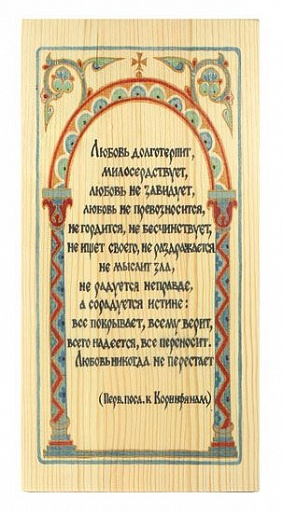 Любовь долготерпит,
милосердствует,
любовь не завидует,
любовь не превозносится,
не гордится, не бесчинствует,
не ищет своего, не раздражается
не мыслит зла,
не радуется неправде,
а сорадуется истине:
все покрывает, всему верит,
всего надеется, все переносит.
Любовь никогда не перестает
(Перв. посл. к Коринфянам)